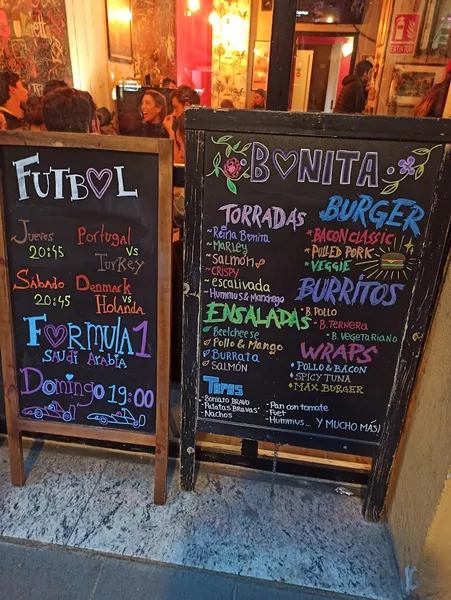 FUTBOL
Jueves Portugal
20:45 vs
Turkey
Sábado Denmark
20:45 vs
Holanda
Formula 1
SAUDI ARABIA
Domingo 19:00
BONITA
TORRADAS
~Reina Bonita
~Marley
~Salmón
~CRISPY
~escalivada
~Hummus & Manchego
ENSALADAS
Beetcheese
Pollo & Mango
BURRATA
SALMÓN
TAPAS
-Boniato BRAVO
-Patatas Bravas
-Nachos
-Pan con tomate
-Fuet
-Hummus... Y MUCHO MÁS!
BURGER
BACON CLASSIC
PULLED PORK
VEGGIE
BURRITOS
~B. POLLO
~B. TERNERA
~B. VEGETARIANO
WRAPS
POLLO & BACON
SPICY TUNA
MAX BURGER
EXTINTOR